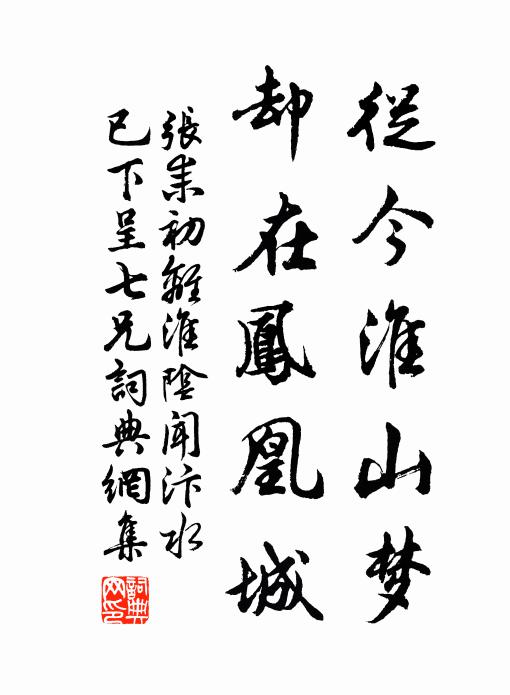 從今淮山梦
却在鳳凰城
張耒初離淮陰聞汴水
已下呈七兄詞典網集
詞典网印